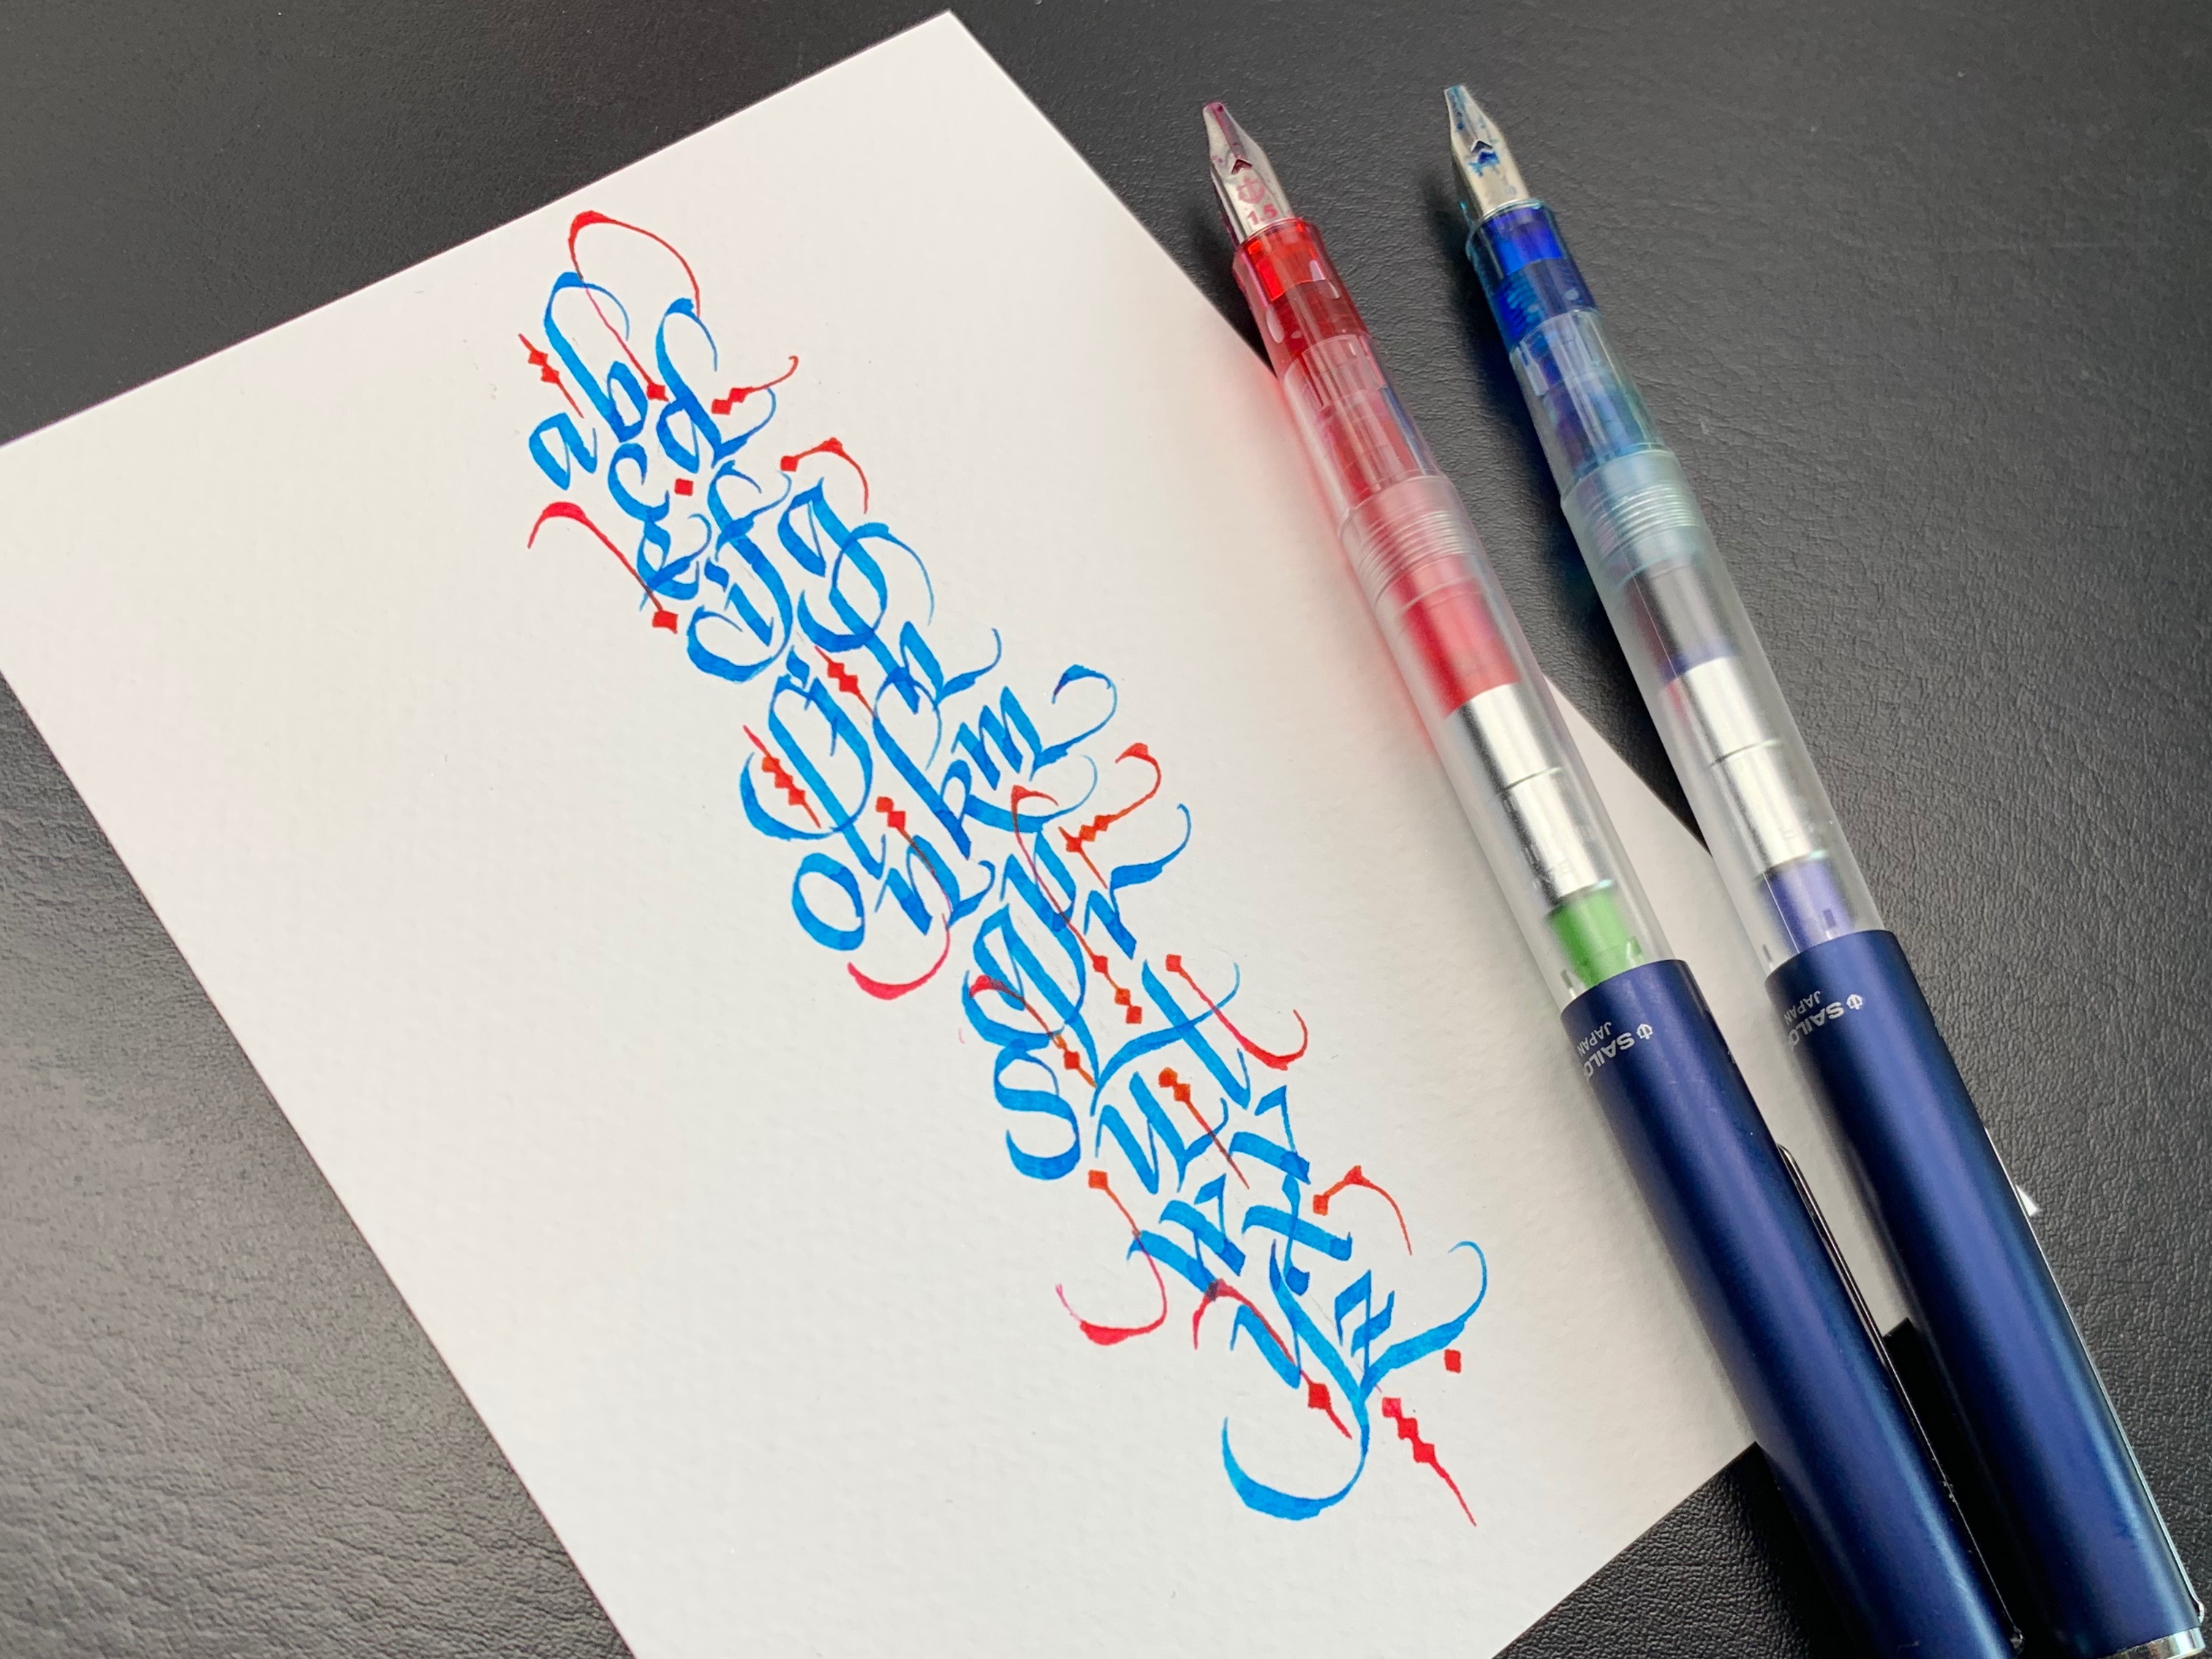 a b c d
e f g
i j h
l k m
o n
q p r
s u t v
w x
y z
1.5
SAILO
JAPAN
SAILO
JAPAN